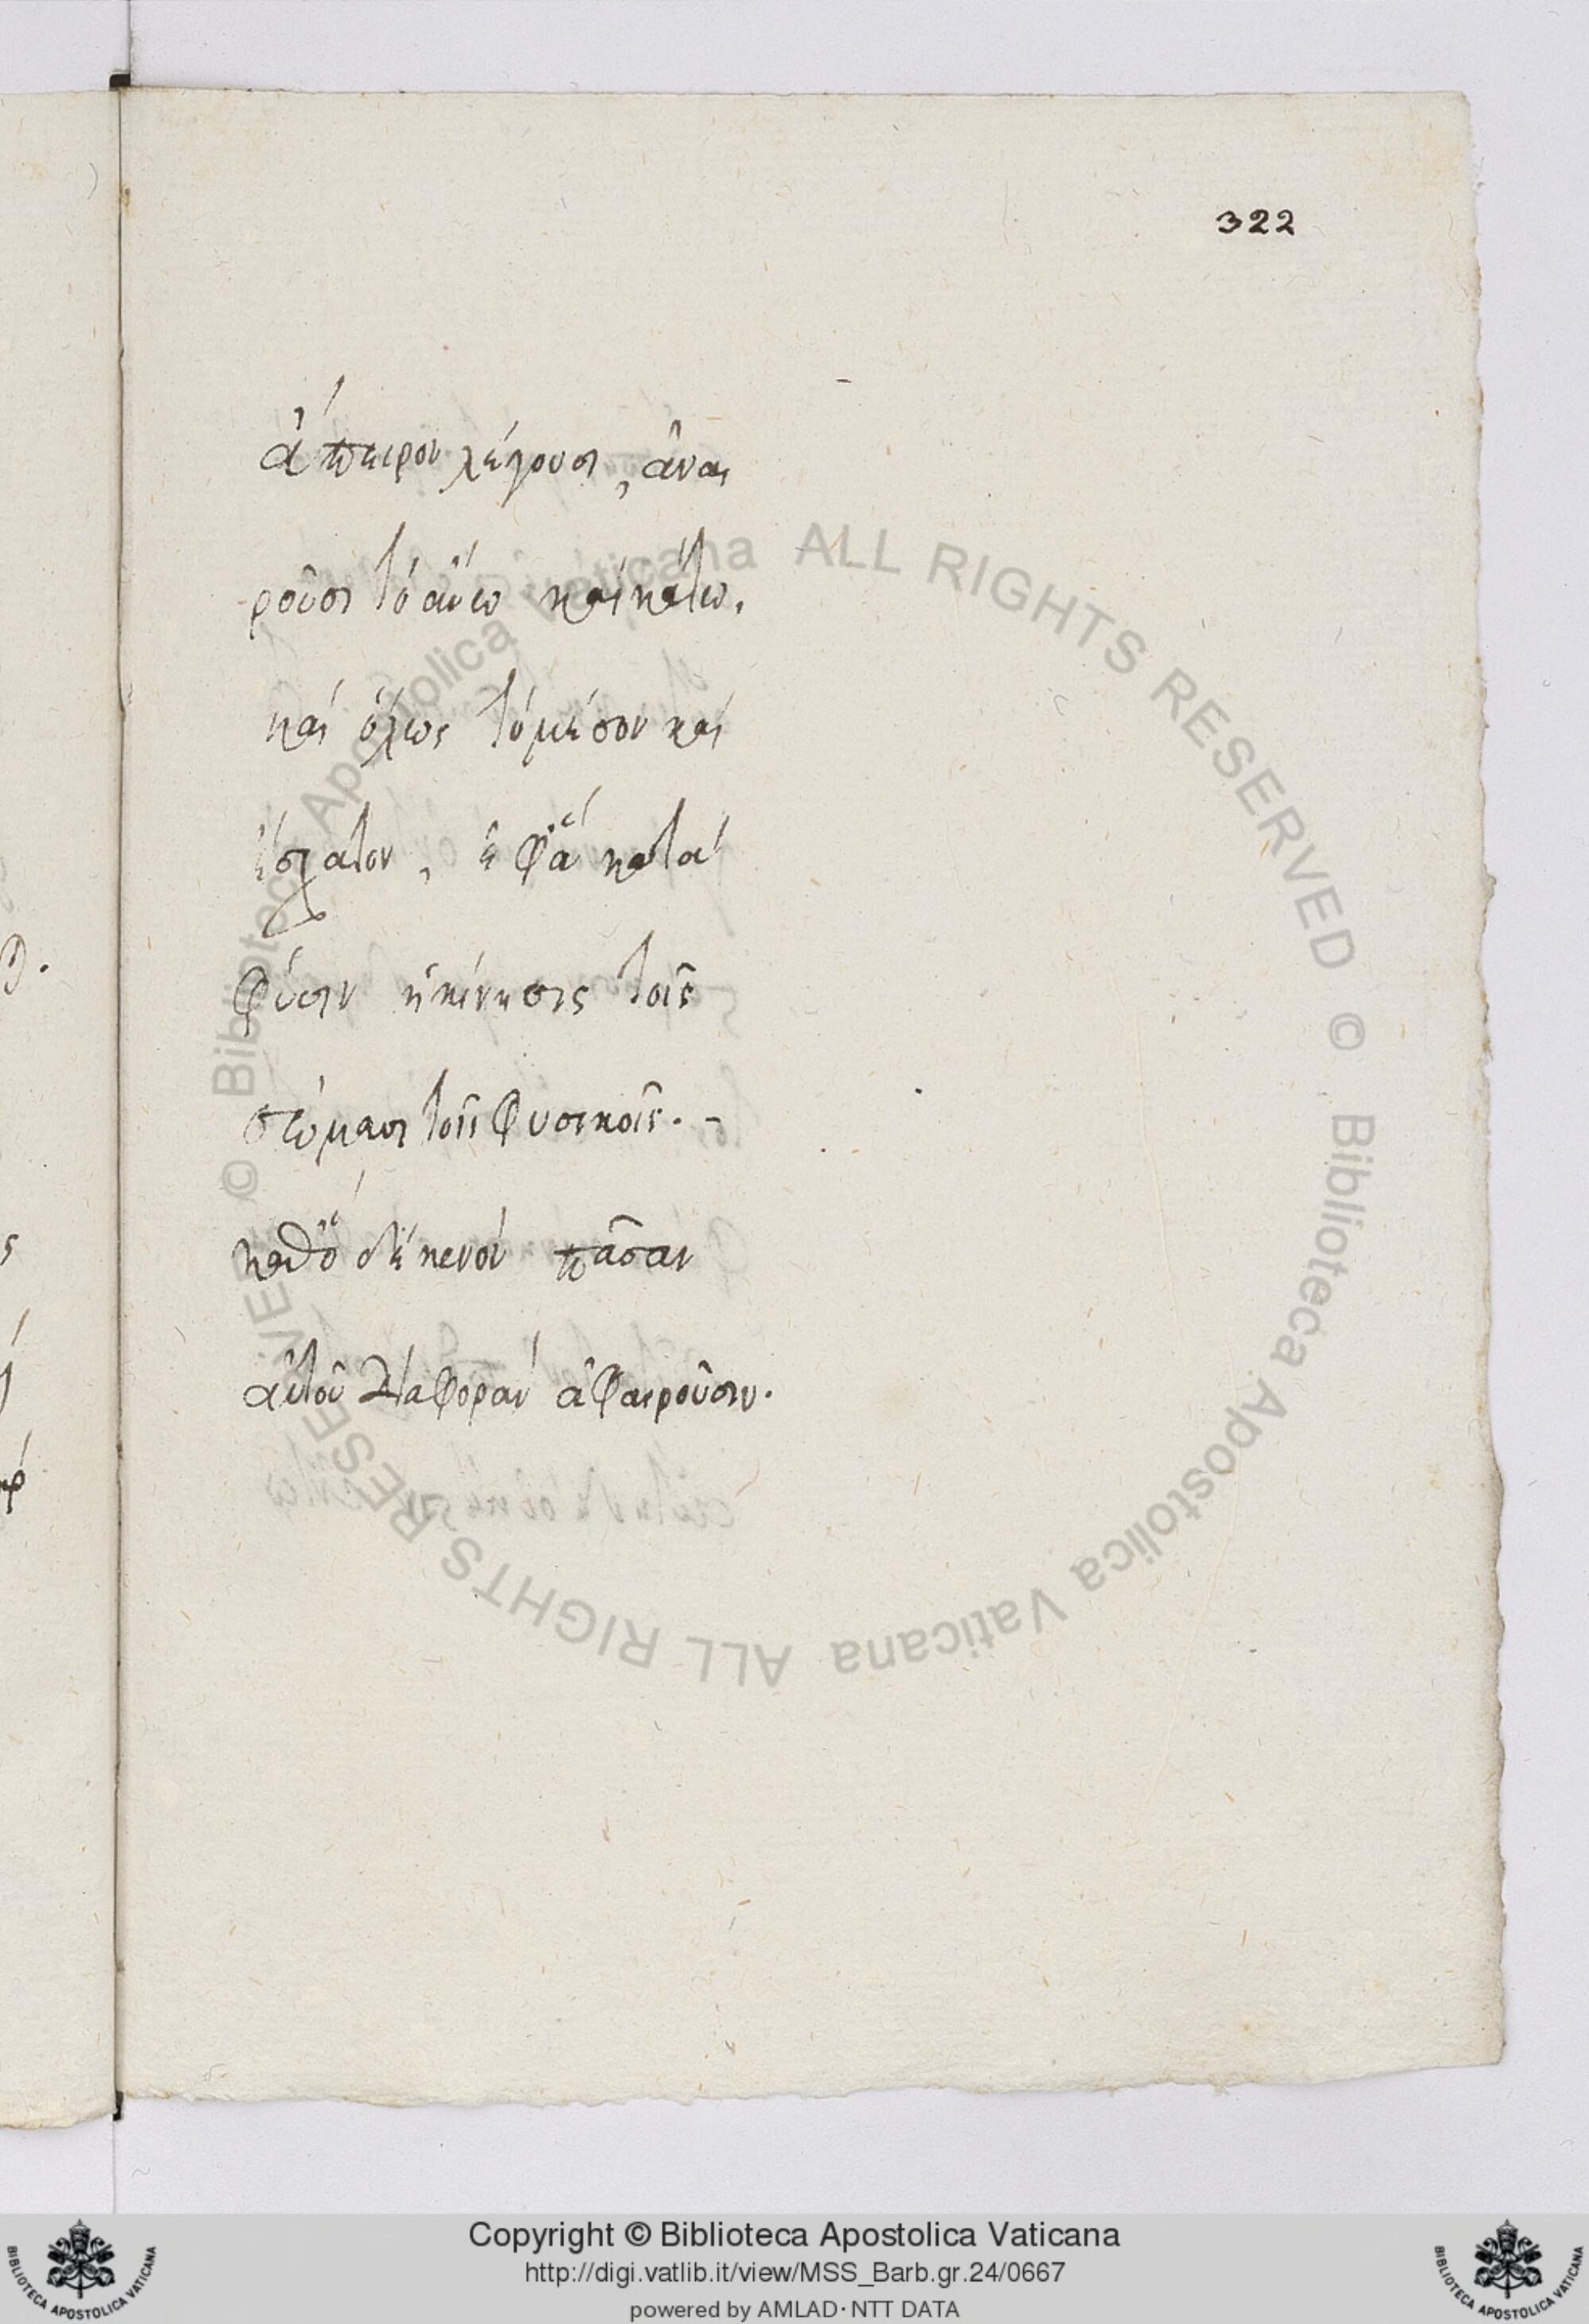 322
ἄπειρον λέγουσι, ἀναι
ροῦσι τὸ ἄνω καὶ κάτω.
καὶ ὅλως τὸ μέσον καὶ
ἔσχατον, ἐφ' ἃ κατὰ
φύσιν ἡ κίνησις τοῖς
σώμασι τοῖς φυσικοῖς. -
καθὸ δὲ κενὸν πᾶσαν
αὐτοῦ διαφορὰν ἀφαιροῦσιν.
© Biblioteca Apostolica Vaticana ALL RIGHTS RESERVED © Biblioteca Apostolica Vaticana ALL RIGHTS RESERVED
Copyright © Biblioteca Apostolica Vaticana
http://digi.vatlib.it/view/MSS_Barb.gr.24/0667
powered by AMLAD·NTT DATA
BIBLIOTECA APOSTOLICA VATICANA
BIBLIOTECA APOSTOLICA VATICANA